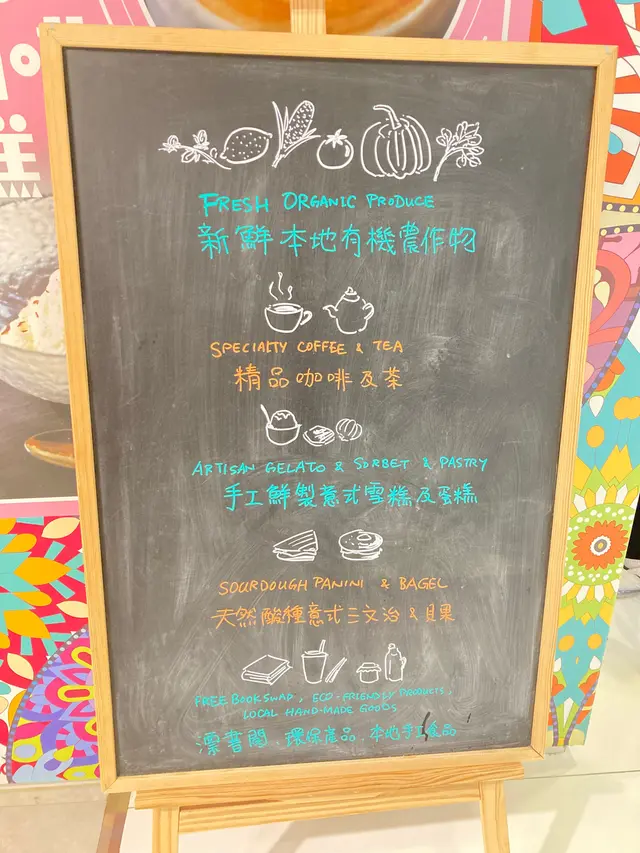 FRESH ORGANIC PRODUCE
新鮮本地有機農作物
SPECIALTY COFFEE & TEA
精品咖啡及茶
ARTISAN GELATO & SORBET & PASTRY
手工鮮製意式雪糕及蛋糕
SOURDOUGH PANINI & BAGEL
天然酸種意式三文治 & 貝果
FREE BOOKSWAP, ECO-FRIENDLY PRODUCTS,
LOCAL HAND-MADE GOODS
漂書閣 . 環保產品 . 本地手工食品